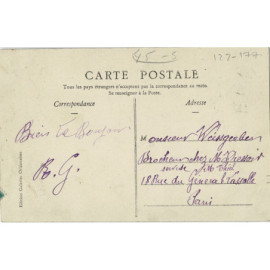 45-5
127-177
CARTE POSTALE
Tous les pays étrangers n'acceptent pas la correspondance au recto.
Se renseigner à la Poste.
Correspondance
Adresse
Bien le Bonjour
R. G.
Monsieur Weissgerber
Brocheur chez M.
18 Rue du Général
Paris